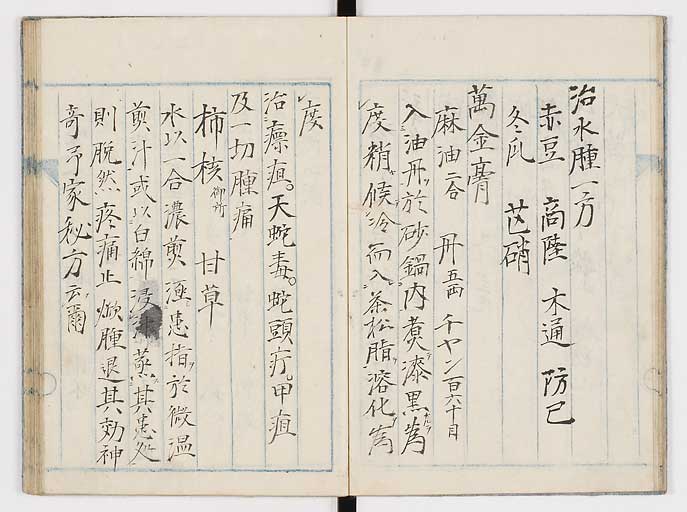 治水腫一方
赤豆 商陸 木通 防已
冬瓜 芒硝
萬金膏
麻油二合 丹五両 チヤン百六十目
入油丹ヲ於砂鍋内煮漆黒為
度稍候冷而入茶松脂溶化為
度
治瘭疽。天蛇毒。蛇頭疔。甲疽
及一切腫痛
柿核御所 甘草
水以一合濃煎浸患指ヲ於微温
煎汁或以白綿浸 蒸其患処
則脱然疼痛止焮腫退其効神
奇予家秘方云爾